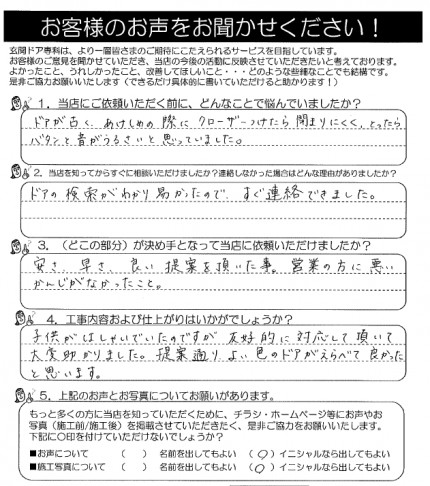 お客様のお声をお聞かせください！
玄関ドア専科は、より一層皆さまのご期待にこたえられるサービスを目指しています。
お客様のご意見を聞かせていただき、当店の今後の活動に反映させていただきたいと考えております。
よかったこと、うれしかったこと、改善してほしいこと・・・どのような些細なことでも結構です。
是非ご協力お願いいたします（できるだけ具体的に書いていただけると助かります！）
1．当店にご依頼いただく前に、どんなことで悩んでいましたか？
ドアが古く、あけしめの際にクローザーつけたら閉まりにくく、とったら
バタンと音がうるさいと思っていました。
2．当店を知ってからすぐに相談いただけましたか？連絡しなかった場合はどんな理由がありましたか？
ドアの検索がわかり易かったので、すぐ連絡できました。
3．（どこの部分）が決め手となって当店に依頼いただけましたか？
安さ、早さ、良い提案を頂いた事。営業の方に悪い
かんじがなかったこと。
4．工事内容および仕上がりはいかがでしょうか？
子供がはしゃいでいたのですが友好的に対応して頂いて
大変助かりました。提案通りよい色のドアがえらべて良かった
と思います。
5．上記のお声とお写真についてお願いがあります。
もっと多くの方に当店を知っていただくために、チラシ・ホームページ等にお声やお
写真（施工前/施工後）を掲載させていただきたく、是非ご協力をお願いいたします。
下記に〇印を付けていただけないでしょうか？
■お声について （ ） 名前を出してもよい （〇）イニシャルなら出してもよい
■施工写真について （ ） 名前を出してもよい （〇）イニシャルなら出してもよい